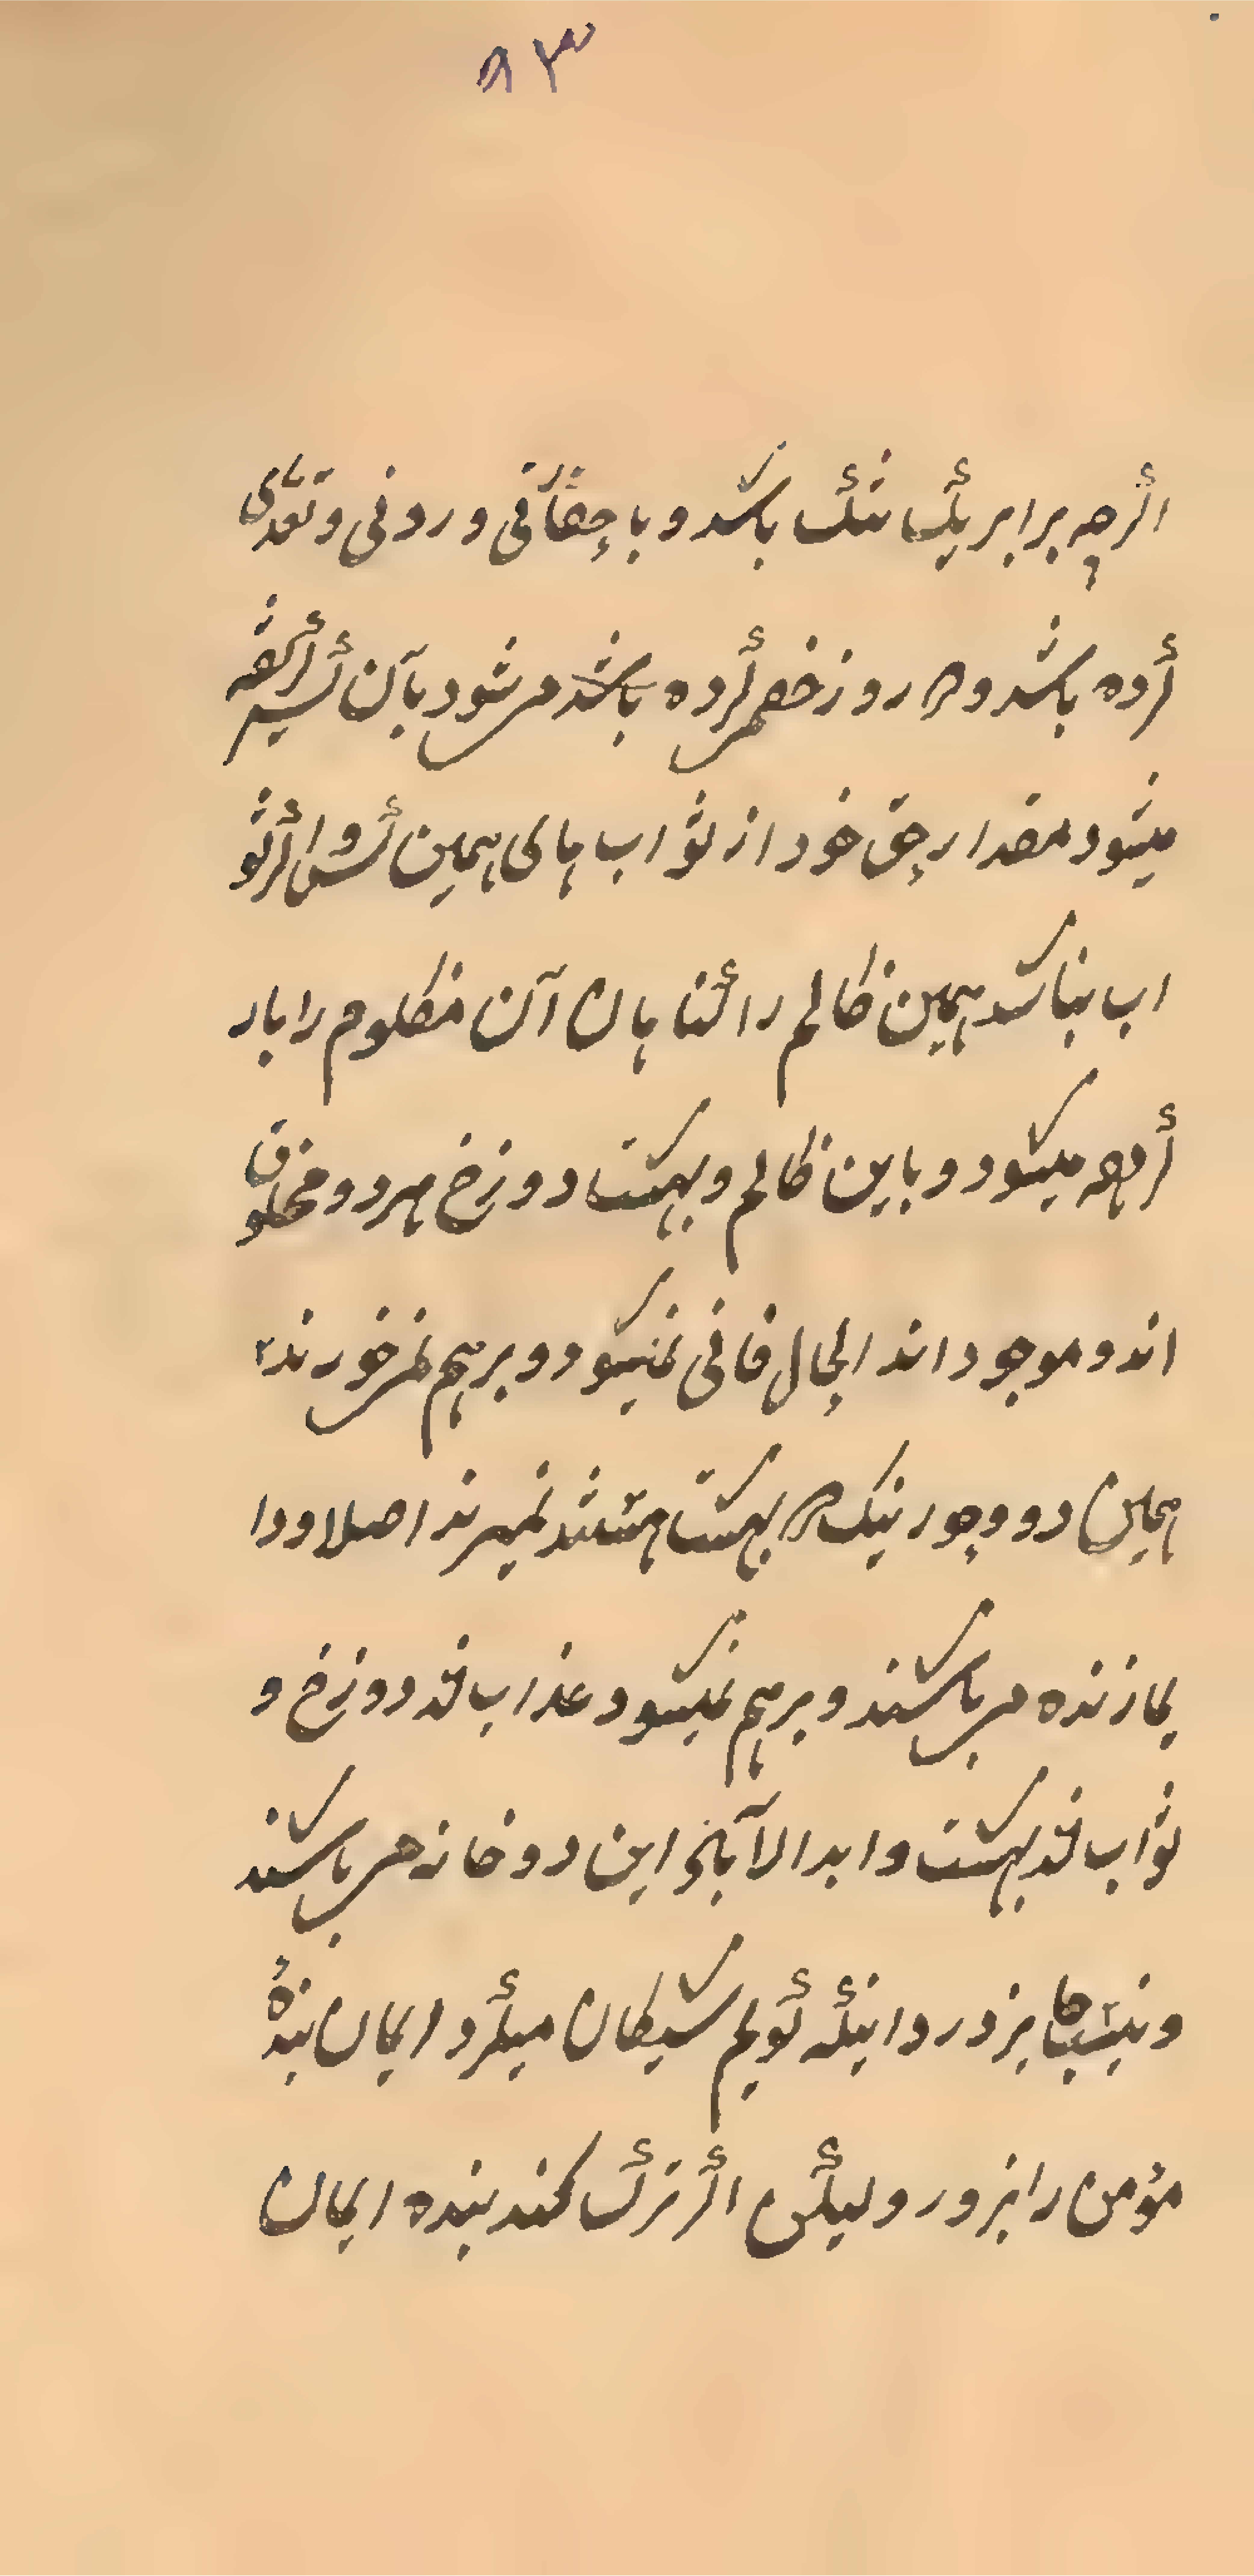 ۸۳
اگرچه برابر یک تنگ باشد و با حقاقی و روفی و تعدی
کرده باشد و هر روز خصمی کرده باشد می شود بآن کسیر اگفته
میشود مقدار حق خود از ثواب های همین کس و اگر ثو
اب نباشد همین ظالم را گناهان آن مظلوم را بار
کرده میشود و باین ظالم و بهشت دوزخ هر دو مخلوق
اند و موجود اند الحال فانی نمیشود و برهم نمی خورند
همین دو و حور نیک در بهشت هستند نمیرند اصلا و دا
یما زنده می باشند و برهم نمیشود عذاب قد دوزخ و
ثواب قد بهشت و ابد الاآباد این دو خانه می باشند
و نیست جایز در دانیکه گویم شیطان میگیرد ایمان بندهٔ
مؤمن را بزور و لیکن اگر ترک کند بنده ایمان